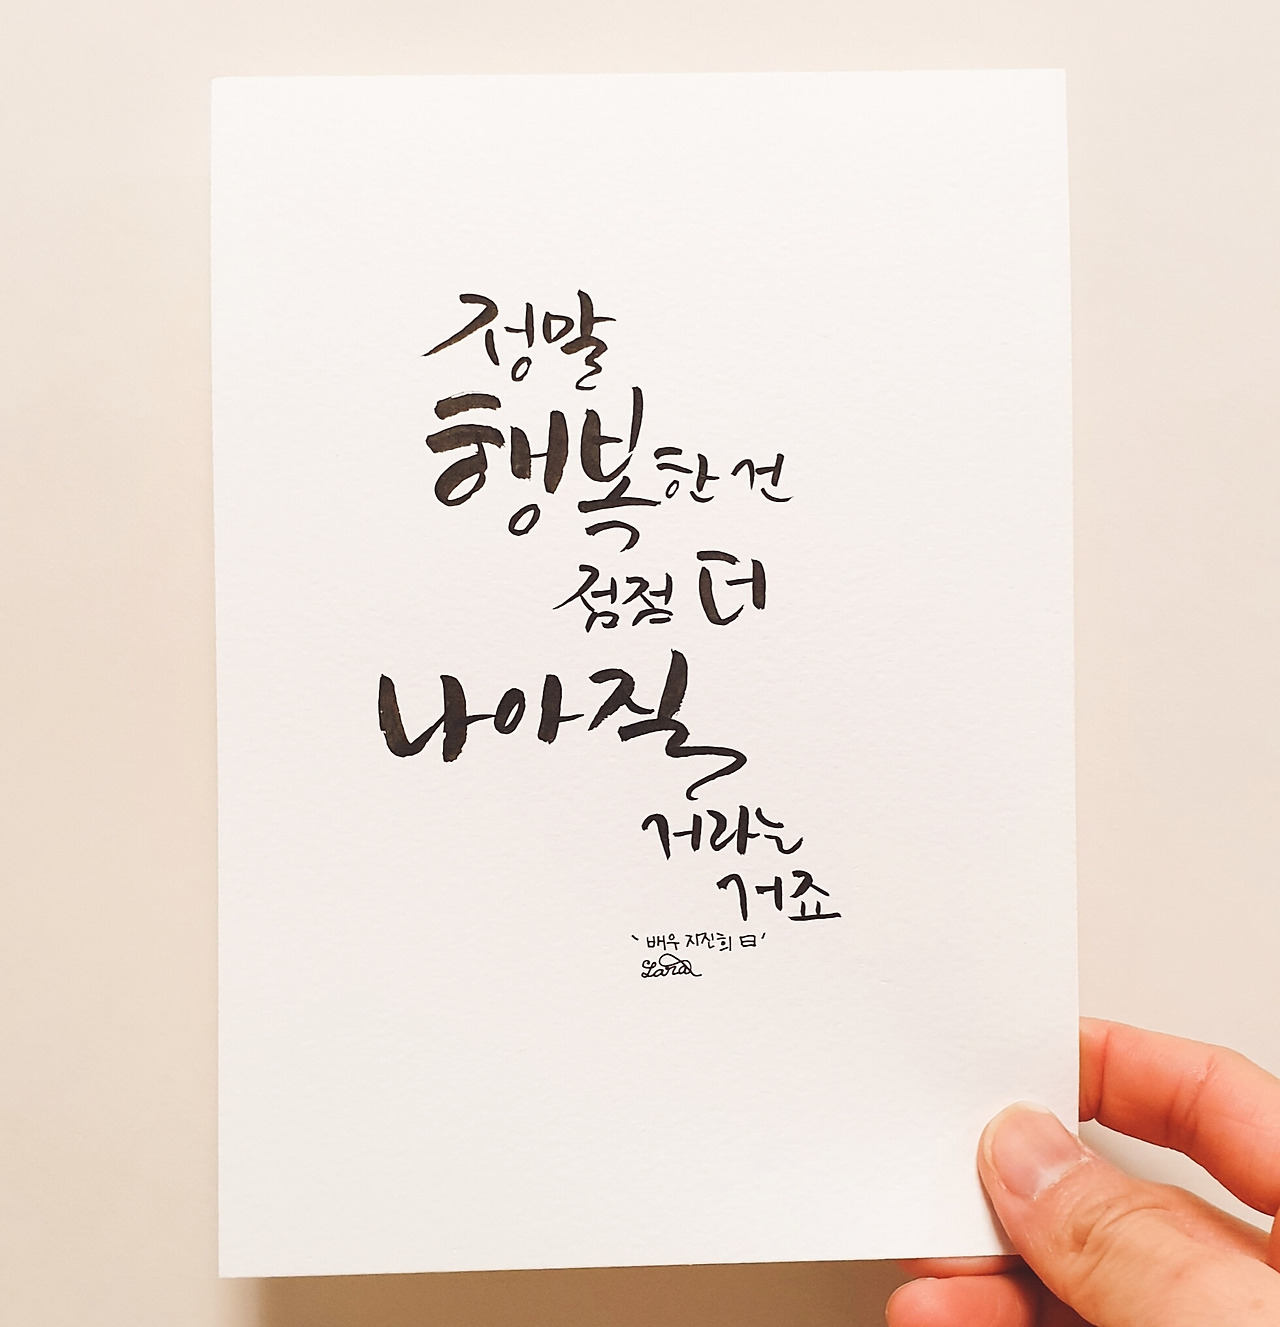 정말
행복한 건
점점 더
나아질
거라는
거죠
`배우 지진희 曰'
Lara